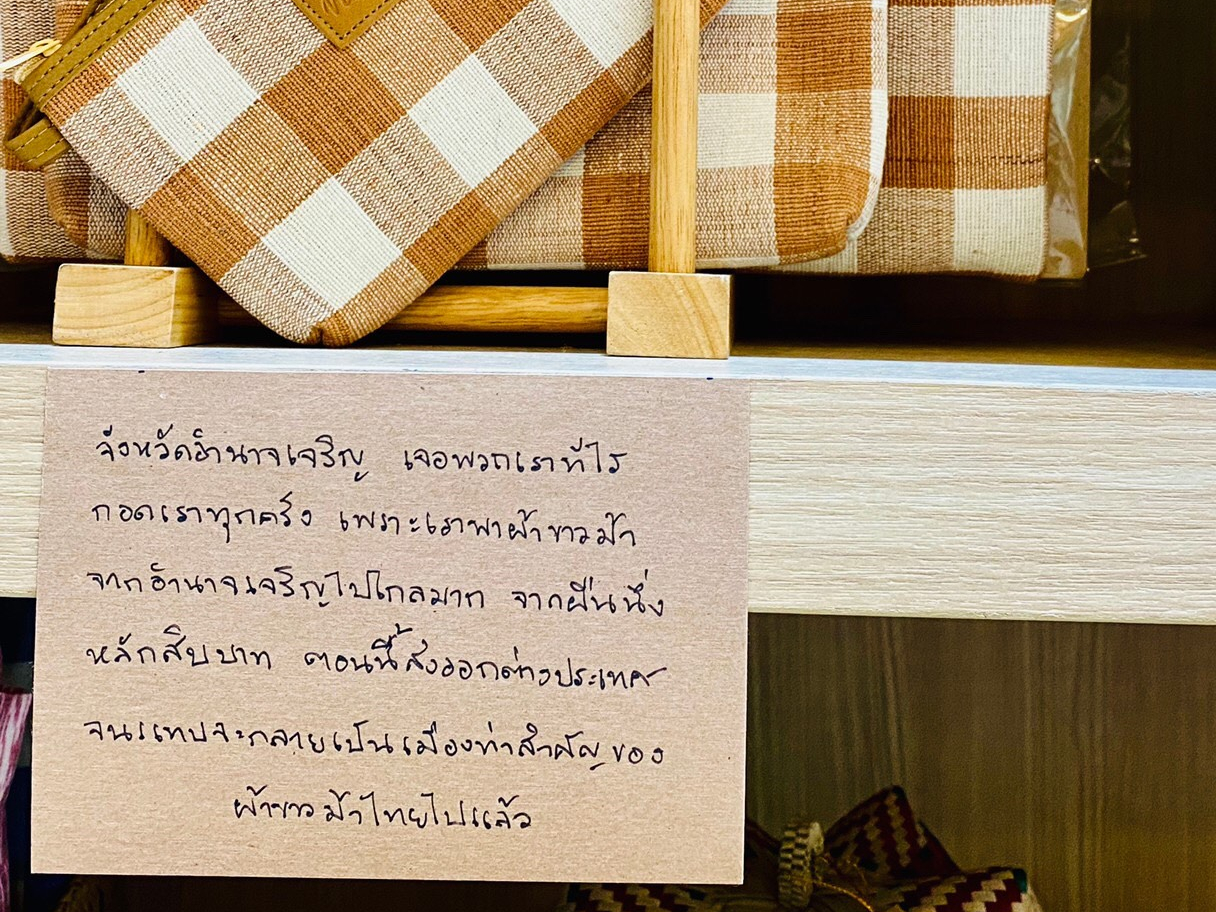 จังหวัดอำนาจเจริญ เจอพวกเราทีไร
กอดเราทุกครั้ง เพราะเราพาผ้าขาวม้า
จากอำนาจเจริญไปไกลมาก จากผืนนึง
หลักสิบบาท ตอนนี้ส่งออกต่างประเทศ
จนแทบจะกลายเป็นเมืองท่าสำคัญของ
ผ้าขาวม้าไทยไปแล้ว